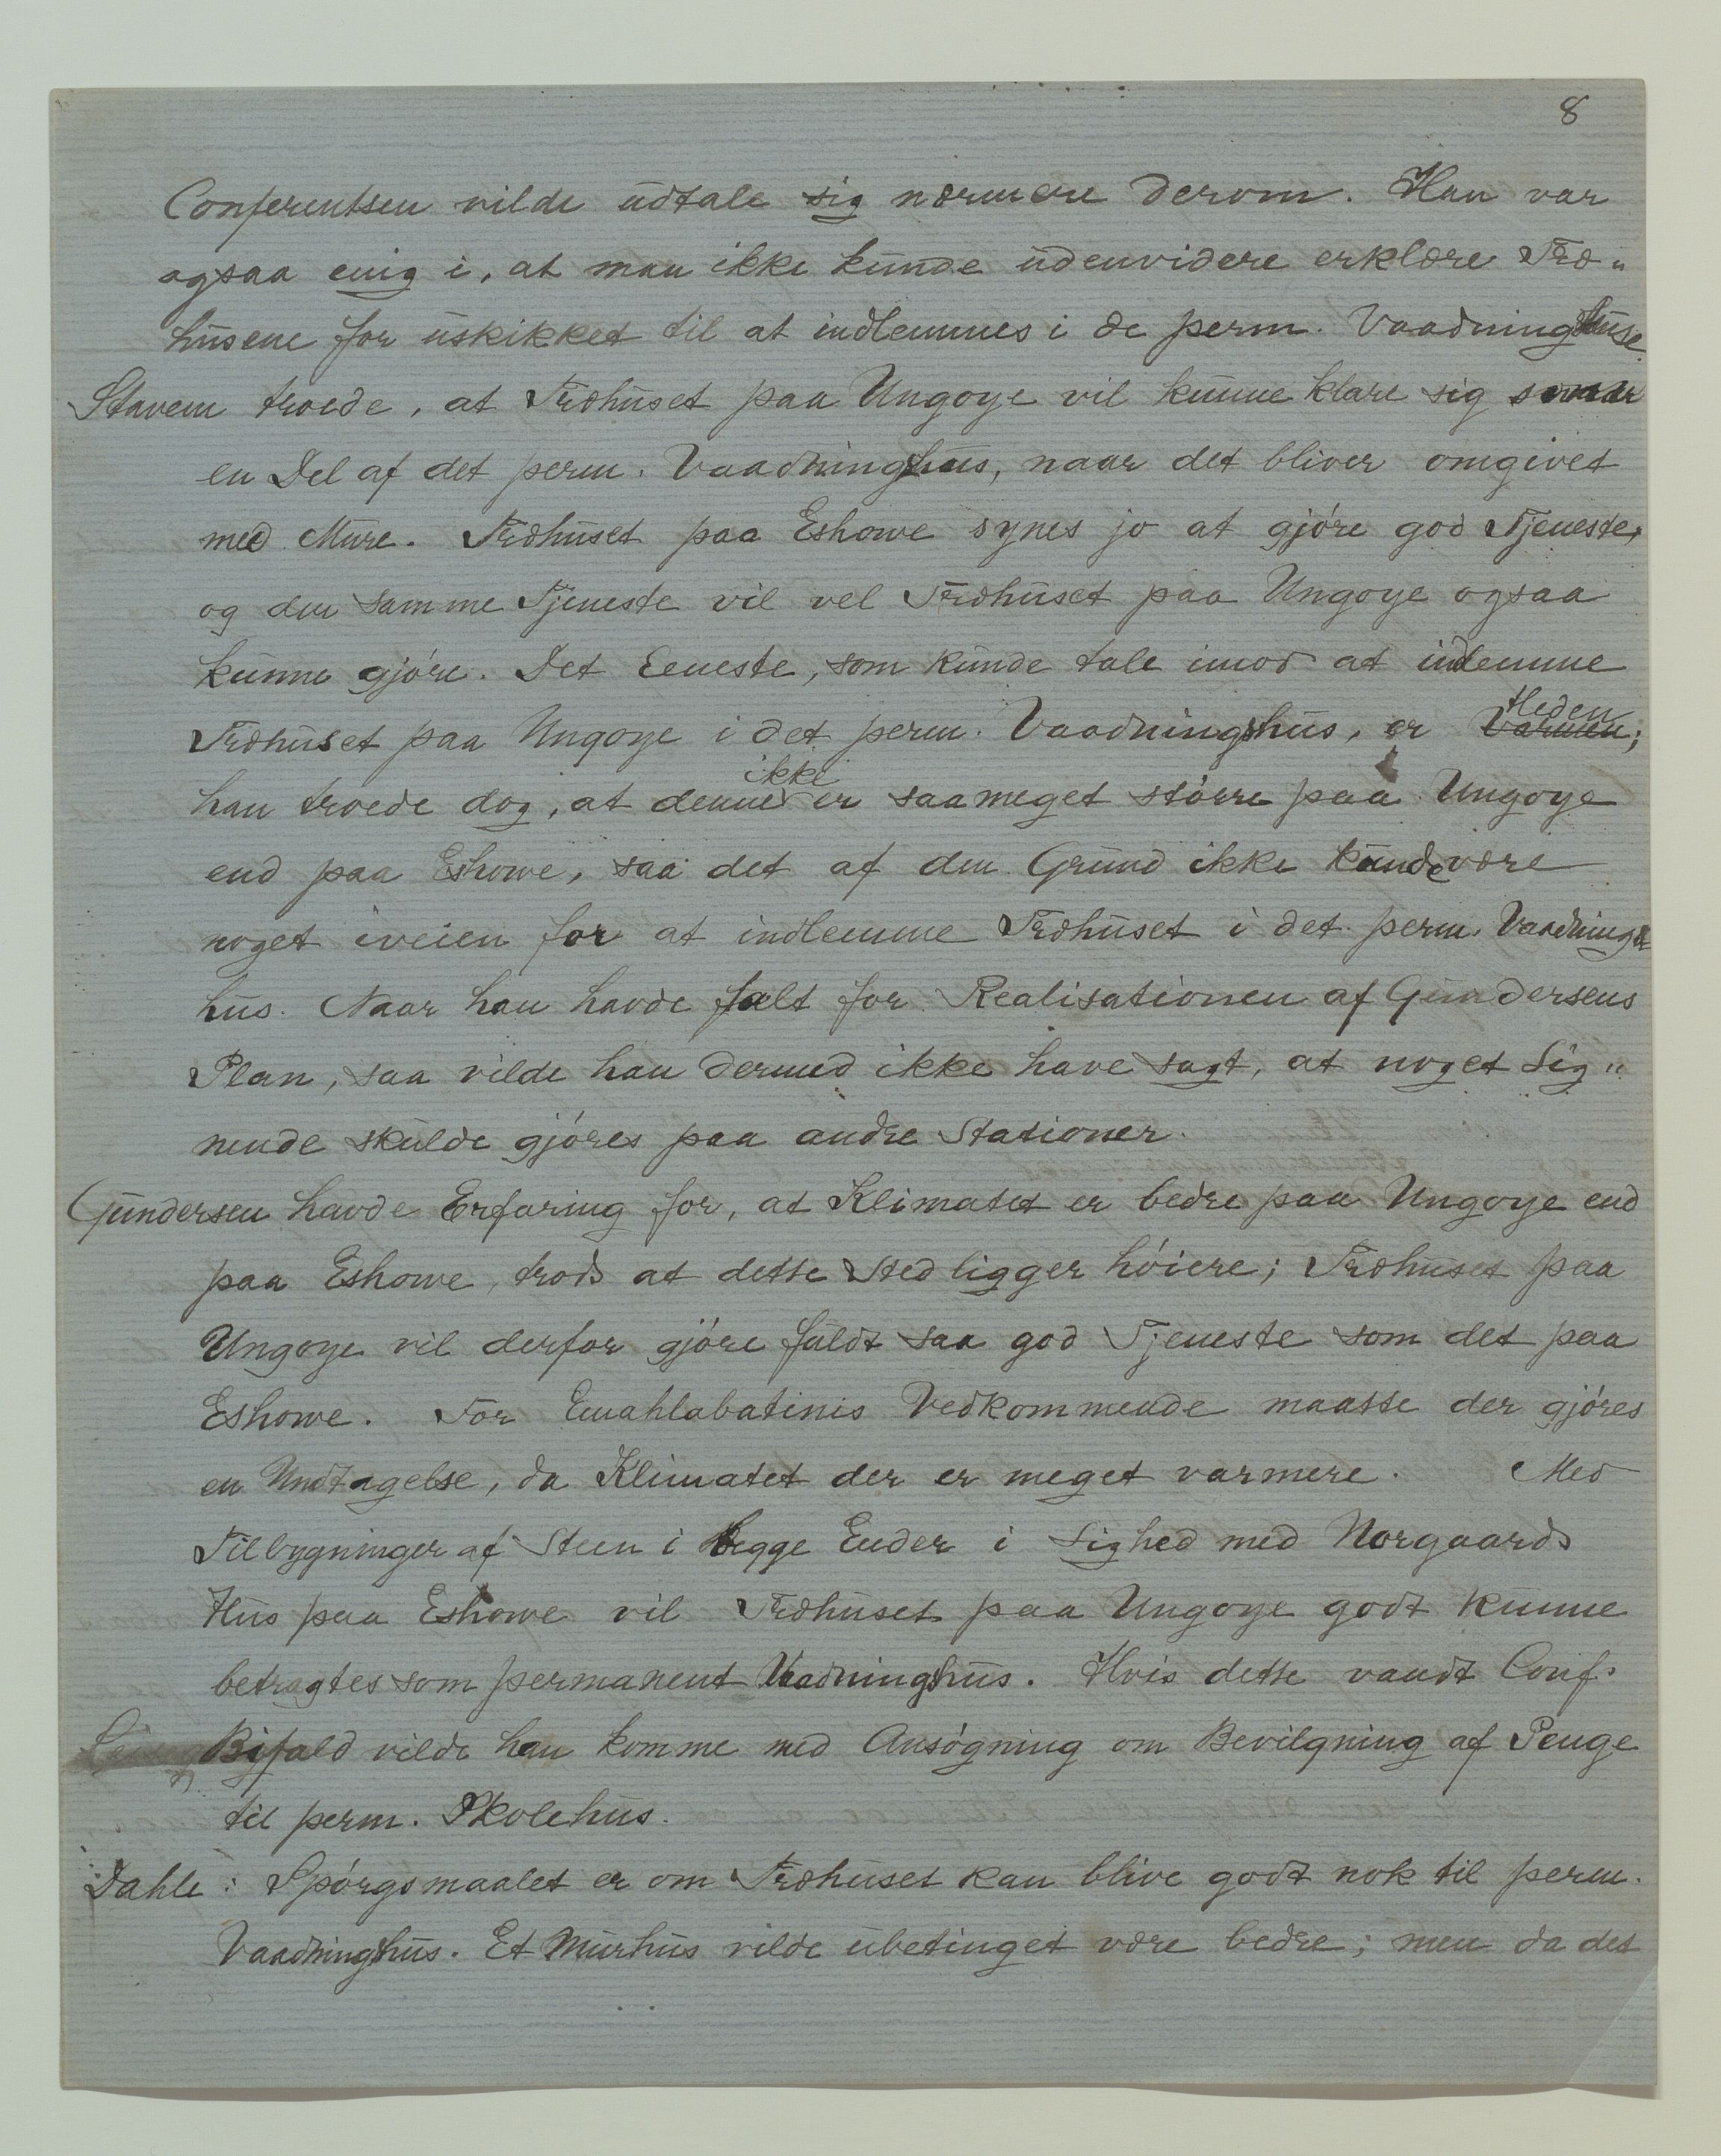 8
Conferentsen vilde udtale sig nærmere derom. Han var
ogsaa enig i, at man ikke kunde udenvidere erklære Træ„
husene for uskikket til at indlemmes i de perm. Vaaningshuse.
Stavem troede, at Træhuset paa Ungoye vil kunne klare sig som
en Del af det perm. Vaaningshus, naar det bliver omgivet
med Mure. Træhuset paa Eshowe synes jo at gjöre god Tjeneste,
og den samme Tjeneste vil vel Træhuset paa Ungoye ogsaa
kunne gjöre. Det Eeneste, som kunde tale imod at indlemme
Heden
Træhuset paa Ungoye i det perm. Vaaningshus, er Varmen;
ikke
han troede dog, at denne er saameget större paa Ungoye
end paa Eshowe, saa det af den Grund ikke kunde være
noget iveien for at indlemme Træhuset i det perm. Vaanings
hus. Naar han havde talt for Realisationen af Gundersens
Plan, saa vilde han dermed ikke have sagt, at noget Lig„
nende skulde gjöres paa andre Stationer.
Gundersen havde Erfaring for, at Klimatet er bedre paa Ungoye end
paa Eshowe, trods at dette Sted ligger höiere; Træhuset paa
Ungoye vil derfor gjöre fuldt saa god Tjeneste som det paa
Eshowe. For Emahlabatinis Vedkommende maatte der gjöres
en Undtagelse, da Klimatet der er meget varmere. Med
Tilbygninger af Steen i begge Ender i Lighed med Norgaards
Hus paa Eshowe vil Træhuset paa Ungoye godt kunne
betragtes som permanent Vaaningshus. Hvis dette vandt Conf.s
Bifald vilde han komme med Ansögning om Bevilgning af Penge
til perm. Skolehus.
Dahle: Spörgsmaalet er om Træhuset kan blive godt nok til perm.
Vaaningshus. Et Murhus vilde ubetinget være bedre; men da det